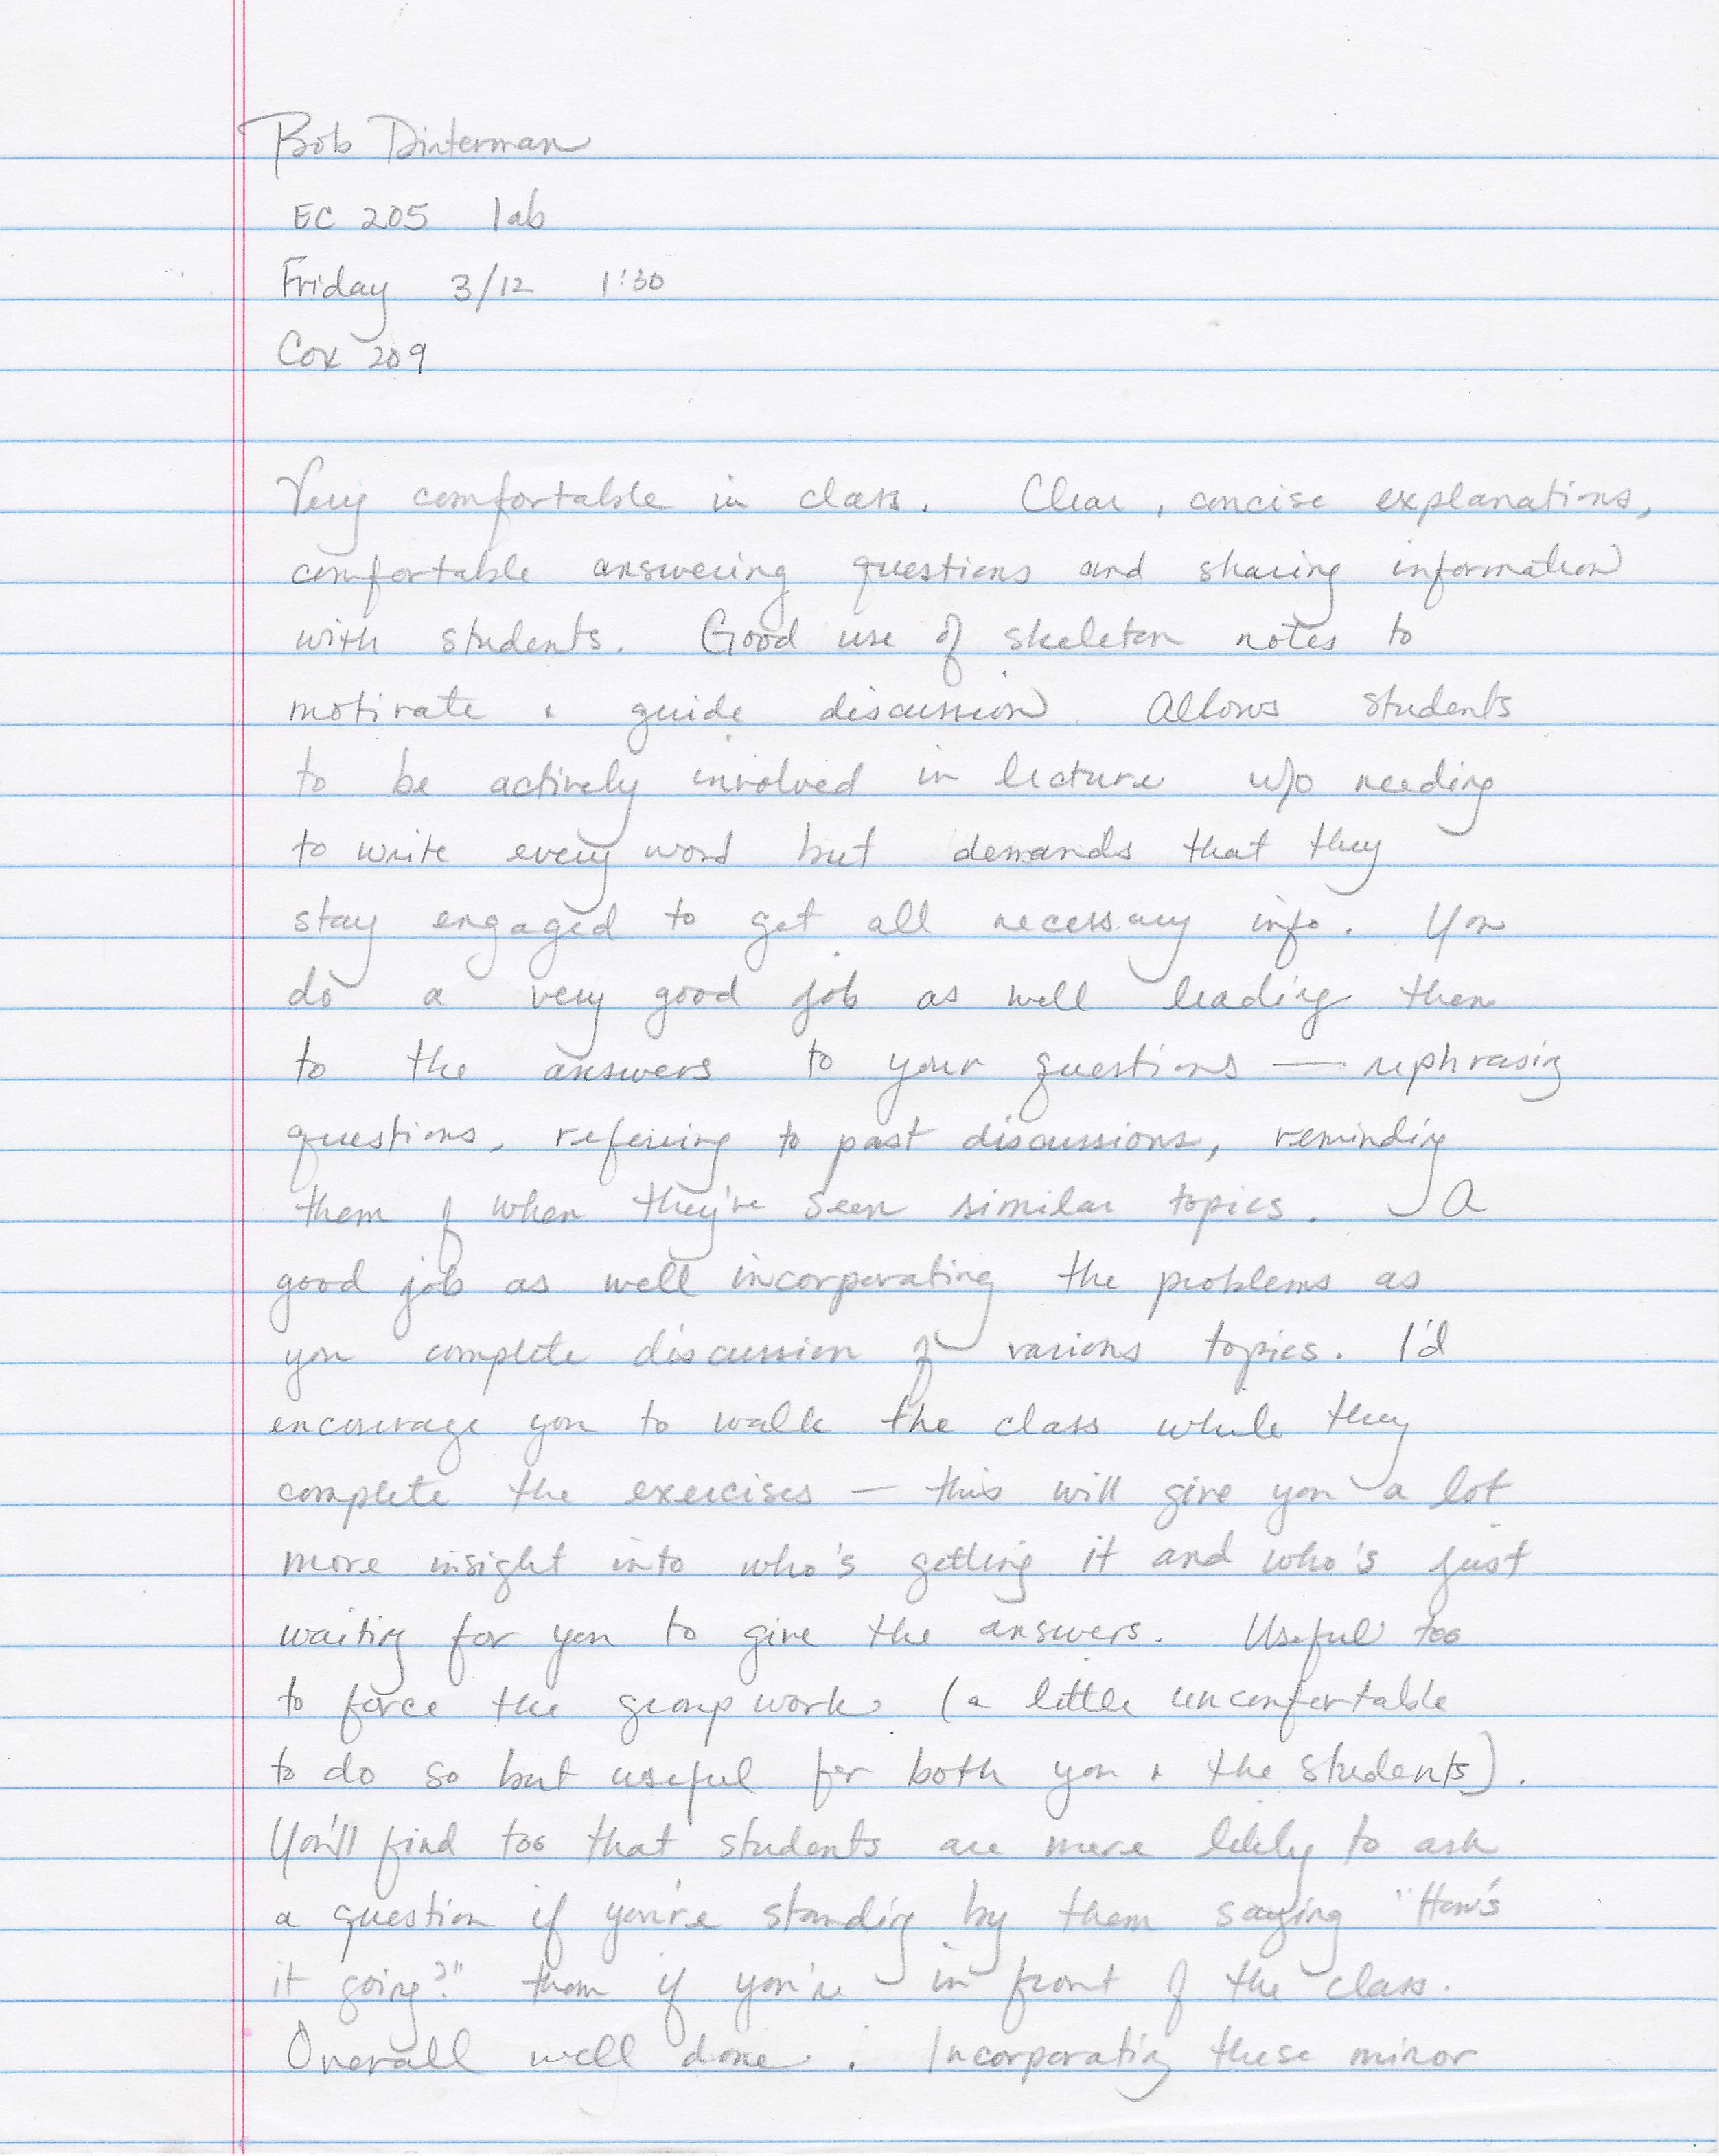 Bob Dinterman
EC 205 lab
Friday 3/12 1:30
Cox 209
Very comfortable in class. Clear, concise explanations,
comfortable answering questions and sharing information
with students. Good use of skeleton notes to
motivate & guide discussion. Allows students
to be actively involved in lecture w/o needing
to write every word but demands that they
stay engaged to get all necessary info. You
do a very good job as well leading them
to the answers to your questions — rephrasing
questions, referring to past discussions, reminding
them of when they've seen similar topics. A
good job as well incorporating the problems as
you complete discussion of various topics. I'd
encourage you to walk the class while they
complete the exercises — this will give you a lot
more insight into who's getting it and who's just
waiting for you to give the answers. Useful too
to force the group work (a little uncomfortable
to do so but useful for both you & the students).
You'll find too that students are more likely to ask
a question if you're standing by them saying "How's
it going?" than if you're in front of the class.
Overall well done. Incorporating these minor